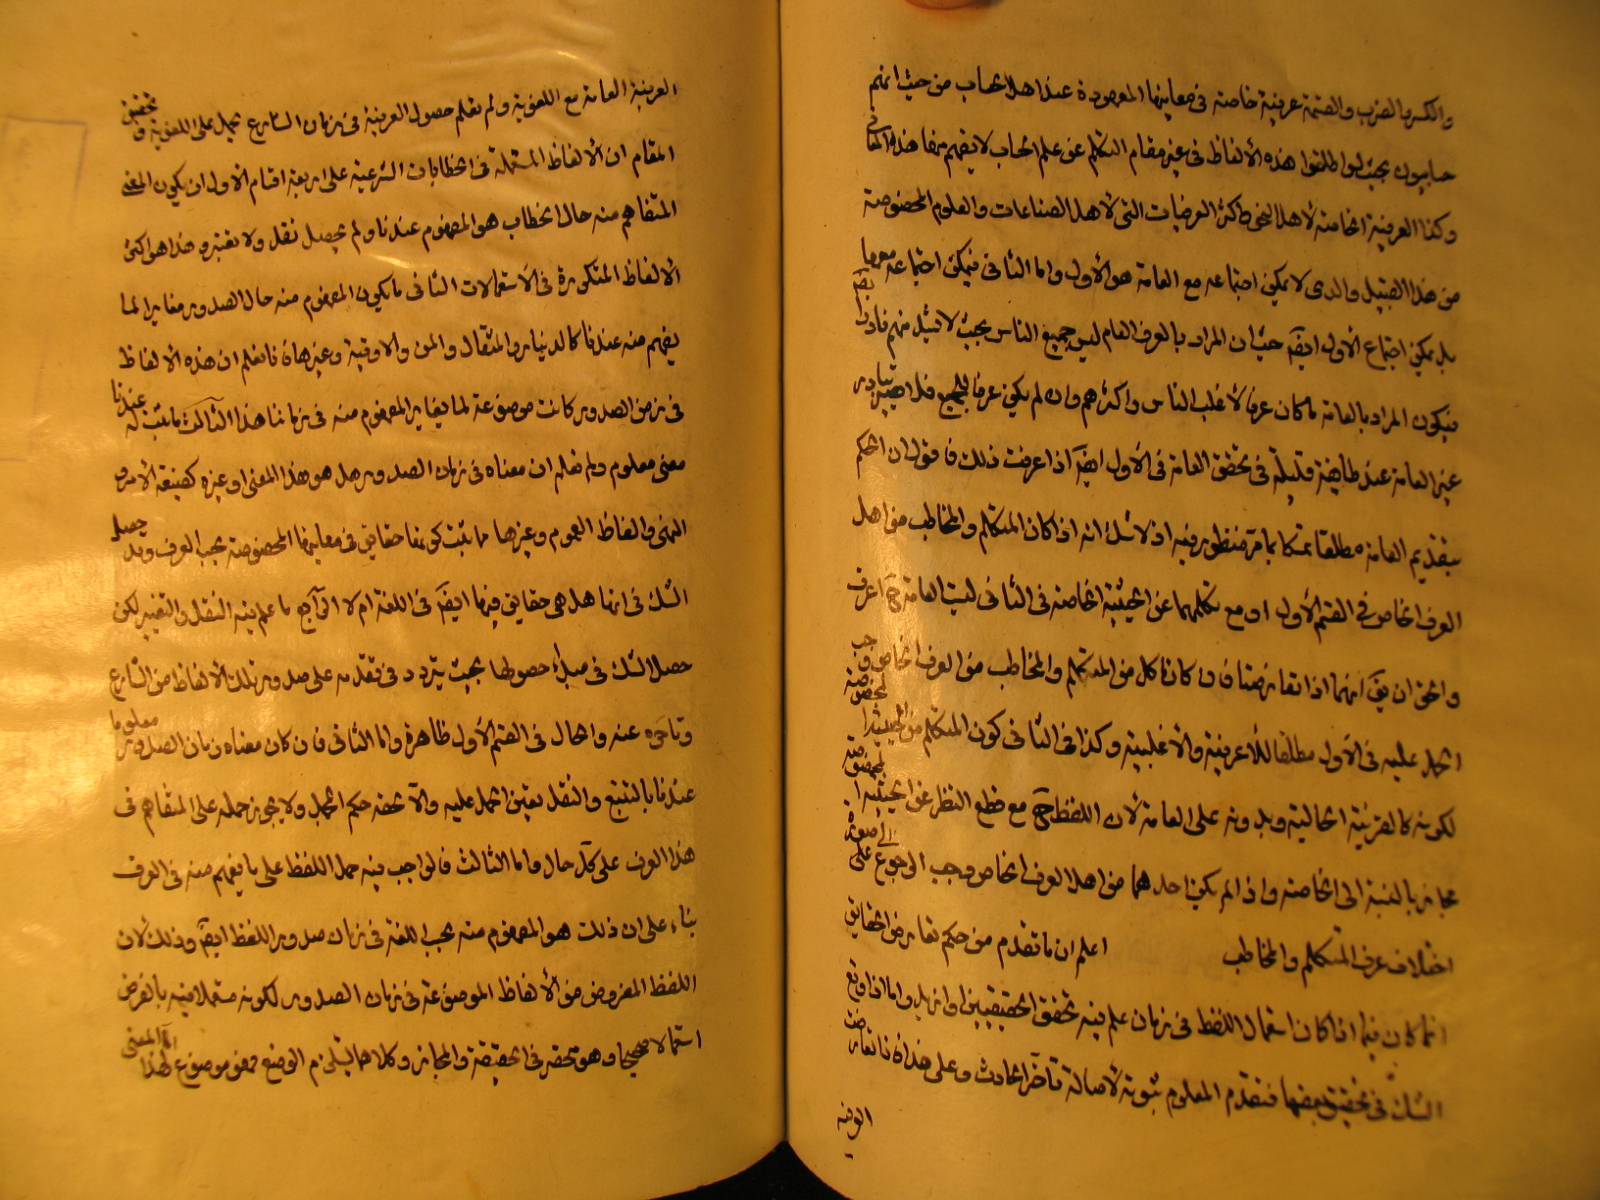 والكسر والضرب والقسمة عرفية خاصة في معاينها المعهودة عند اهل الحساب من حيث انهم
حاسبون بحيث لو اطلقوا هذه الألفاظ في غير مقام التكلم عن علم الحساب لا يفهم منها هذه المعاني
وكذا العرفية الخاصة لأهل النحو واكثر العرفيات التي لاهل الصناعات والعلوم المخصوصة
من هذا القبيل والذي لا يمكن اجتماعه مع العامة هو الأول واما الثاني فيمكن اجتماعه معها
بل يمكن اجتماع الأول ايضَ حيث ان المراد بالعرف العام ليس جميع الناس بحيث لا يشذ منهم فاذا
فيكون المراد بالعامة ما كان عرفا لأغلب الناس واكثرهم وان لم يكن عرفا للجميع فلا يضر تبادر
غير العامة عند طائفة قليلة في تحقق العامة في الأول ايضَ اذا عرفت ذلك فاقول ان الحكم
بتقديم العامة مطلقا تمسكا بما مر منظور فيه اذ لا شك انه اذا كان المتكلم والمخاطب من اهل
العرف الخاص في القسم الأول او مع تكلمهما عن الحيثية الخاصة في الثاني ليست العامة حَ اعرف
والحق ان يقَ انهما اذا تعارضتا فان كانا كل من المتكلم والمخاطب من العرف الخاص وجب
الحمل عليه في الأول مطلقا للاعرفية والأغلبية وكذا في الثاني كون المتكلم من الحيثية المخصوصة
لكونه كالقرينة الحالية وبدونه على العامة لأن اللفظ حَ مع قطع النظر عن الحيثية المخصوصة
مجاز بالنسبة الى الخاصة واذا لم يكن احدهما من اهل العرف الخاص وجب الرجوع الى صورة
اختلاف عرف المتكلم والمخاطب اعلم ان ما تقدم من حكم تعارض الحقايق
انما كان فيما اذا كان استعمال اللفظ في زمان علم فيه تحقق الحقيقتين او ازيد واما اذا وقع
الشك في تحقق بعضها فتقدم المعلوم ثبوته لاصالة تأخر الحادث وعلى هذا اذا تعارضت
العرفية
العرفية العامة مع اللغوية ولم نعلم حصول العرفية في زمان الشارع يحمل على اللغوية وتحقيق
المقام ان الألفاظ المستعملة في الخطابات الشرعية على اربعة اقسام الأول ان يكون المعنى
المتفاهم منه حال الخطاب هو المفهوم عندنا ولم يحصل نقل ولا تغير وهذا هو اكثر
الألفاظ المتكررة في الاستعمالات الثاني ما يكون المفهوم منه حال الصدور مغايرا لما
يفهم منه عندنا كالدينار والمثقال والمن والاوقية وغيرها فانا نعلم ان هذه الألفاظ
في زمن الصدور كانت موضوعة لما يغاير المفهوم منه في زماننا هذا الثالث ما ثبت له عندنا
معنى معلوم ولم نعلم ان معناه في زمان الصدور هل هو هذا المعنى او غيره كصيغة الأمر و
النهي والفاظ العموم وغيرها مما يثبت كونها حقايق في معاينها المخصوصة بحسب العرف وقد حصل
الشك في انها هل هي حقايق فيها ايضَ في اللغة ام لا الرابع ما علم فيه النقل والتغيير لكن
حصل الشك في مبدأ حصولها بحيث يتردد في تقدمه على صدور تلك الألفاظ من الشارع
وتأخره عنه والحال في القسم الأول ظاهرة واما الثاني فان كان معناه زمان الصدور معلوما
عندنا بالتتبع والنقل تعين الحمل عليه والاّ لحقه حكم المجمل ولا يجوز حمله على المتفاهم في
هذا العرف على كل حال واما الثالث فالواجب فيه حمل اللفظ على ما يفهم منه في العرف
بناء على ان ذلك هو المفهوم منه بحسب اللغة في زمان صدور اللفظ ايضَ وذلك لان
اللفظ المفروض من الألفاظ الموضوعة في زمان الصدور لكونه مستعملا فيه بالفرض
استعمالا صحيحا وهو منحصر في الحقيقة والمجاز وكلاهما يستلزم الوضع فهو موضوع اما لهذا المعنى